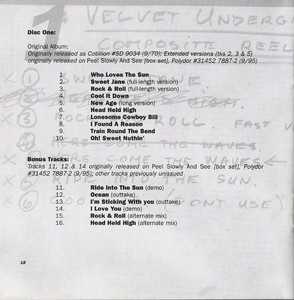 1 VELVET UNDERG
COMPOSITE REEL
Disc One:
Original Album:
Originally released as Cotillion #SD 9034 (9/70); Extended versions (tks 2, 3 & 5)
originally released on Peel Slowly And See [box set], Polydor #31452 7887-2 (9/95)
1. Who Loves The Sun
2. Sweet Jane (full-length version)
3. Rock & Roll (full-length version)
4. Cool It Down
5. New Age (long version)
6. Head Held High
7. Lonesome Cowboy Bill
8. I Found A Reason
9. Train Round The Bend
10. Oh! Sweet Nuthin'
Bonus Tracks:
Tracks 11, 12 & 14 originally released on Peel Slowly And See [box set], Polydor
#31452 7887-2 (9/95); other tracks previously unissued
11. Ride Into The Sun (demo)
12. Ocean (outtake)
13. I'm Sticking With you (outtake)
14. I Love You (demo)
15. Rock & Roll (alternate mix)
16. Head Held High (alternate mix)
18